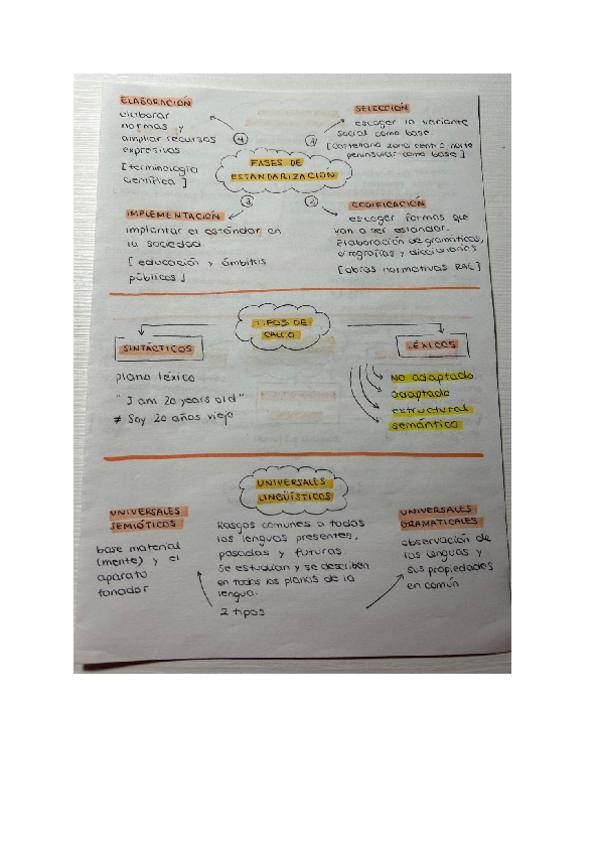 ELABORACIÓN
elaborar
normas y
ampliar recursos
expresivos
[terminología
científica]
4
1
FASES DE
ESTANDARIZACIÓN
3
2
SELECCIÓN
escoger la variante
social como base.
[castellano zona centro norte
peninsular como base]
IMPLEMENTACIÓN
implantar el estándar en
la sociedad
[educación y ámbitos
públicos]
CODIFICACIÓN
escoger formas que
van a ser estándar.
Elaboración de gramáticas,
ortografías y diccionarios
[obras normativas RAE]
TIPOS DE
CALCO
SINTÁCTICOS
plano léxico
"I am 20 years old"
≠ Soy 20 años viejo
LÉXICOS
NO adaptado
adaptado
estructural
semántico
UNIVERSALES
LINGÜÍSTICOS
UNIVERSALES
SEMIÓTICOS
base material
(mente) y el
aparato
fonador
Rasgos comunes a todas
las lenguas presentes,
pasadas y futuras.
Se estudian y se describen
en todos los planos de la
lengua.
2 tipos
UNIVERSALES
GRAMATICALES
observación de
las lenguas y
sus propiedades
en común